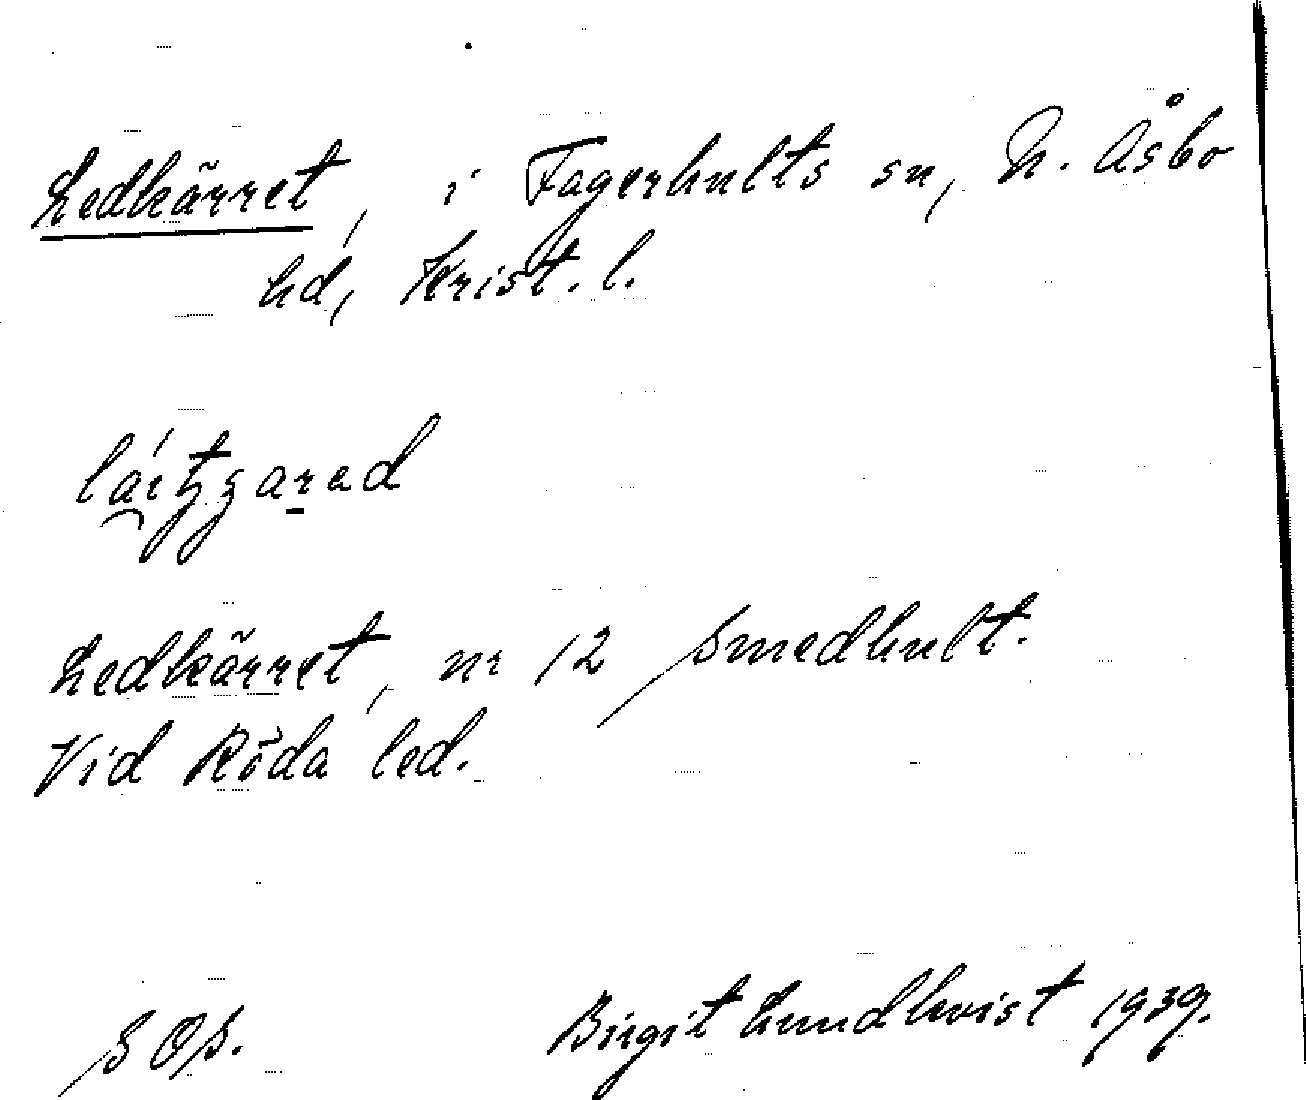 Ledkärret, i Fagerhults sn, N. Åsbo
hd, Krist. l.
Ledkärret, nr 12 Smedhult.
Vid Röda led.
SOS. Birgit Lundkvist 1939.